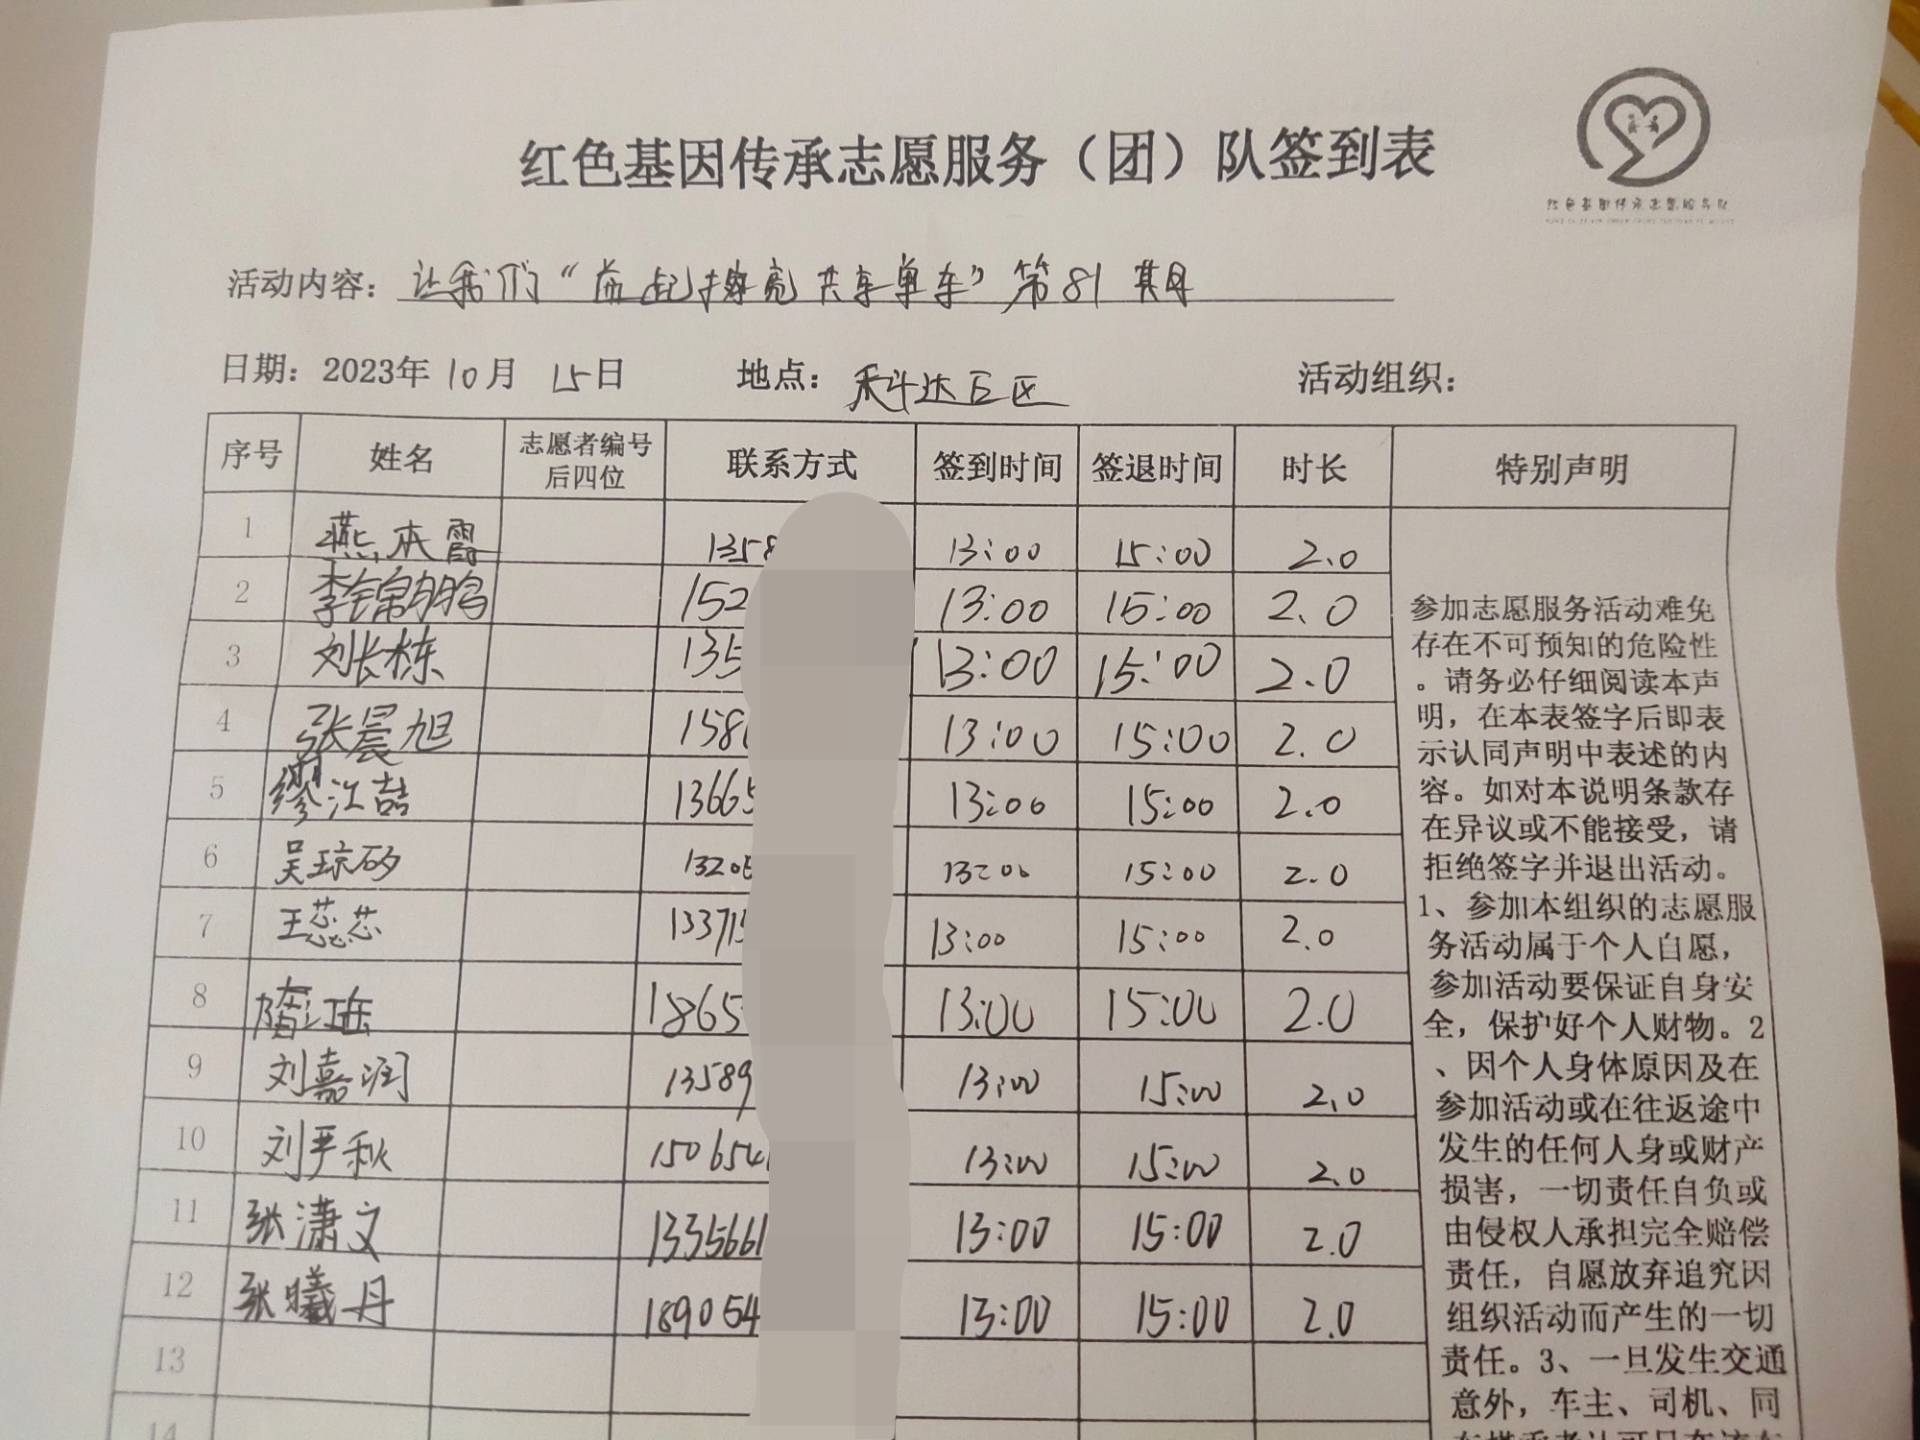 红色基因传承志愿服务（团）队签到表
红色基因传承志愿服务队
活动内容：让我们“益起擦亮共享单车”第81期
日期：2023年10月15日 地点：科达店区 活动组织：
序号 姓名 志愿者编号后四位 联系方式 签到时间 签退时间 时长 特别声明
1 燕本霞 1358 13:00 15:00 2.0
2 李锦鹏 152 13:00 15:00 2.0
3 刘长栋 135 13:00 15:00 2.0
4 张晨旭 158 13:00 15:00 2.0
5 缪江喆 13665 13:00 15:00 2.0
6 吴琼矽 1320 13:00 15:00 2.0
7 王蕊芯 13371 13:00 15:00 2.0
8 隋江珤 1865 13:00 15:00 2.0
9 刘嘉润 13589 13:00 15:00 2.0
10 刘严秋 150654 13:00 15:00 2.0
11 张潇文 1335661 13:00 15:00 2.0
12 张曦丹 189054 13:00 15:00 2.0
13
14
参加志愿服务活动难免
存在不可预知的危险性
。请务必仔细阅读本声
明，在本表签字后即表
示认同声明中表述的内
容。如对本说明条款存
在异议或不能接受，请
拒绝签字并退出活动。
1、参加本组织的志愿服
务活动属于个人自愿，
参加活动要保证自身安
全，保护好个人财物。2
、因个人身体原因及在
参加活动或在往返途中
发生的任何人身或财产
损害，一切责任自负或
由侵权人承担完全赔偿
责任，自愿放弃追究因
组织活动而产生的一切
责任。3、一旦发生交通
意外，车主、司机、同